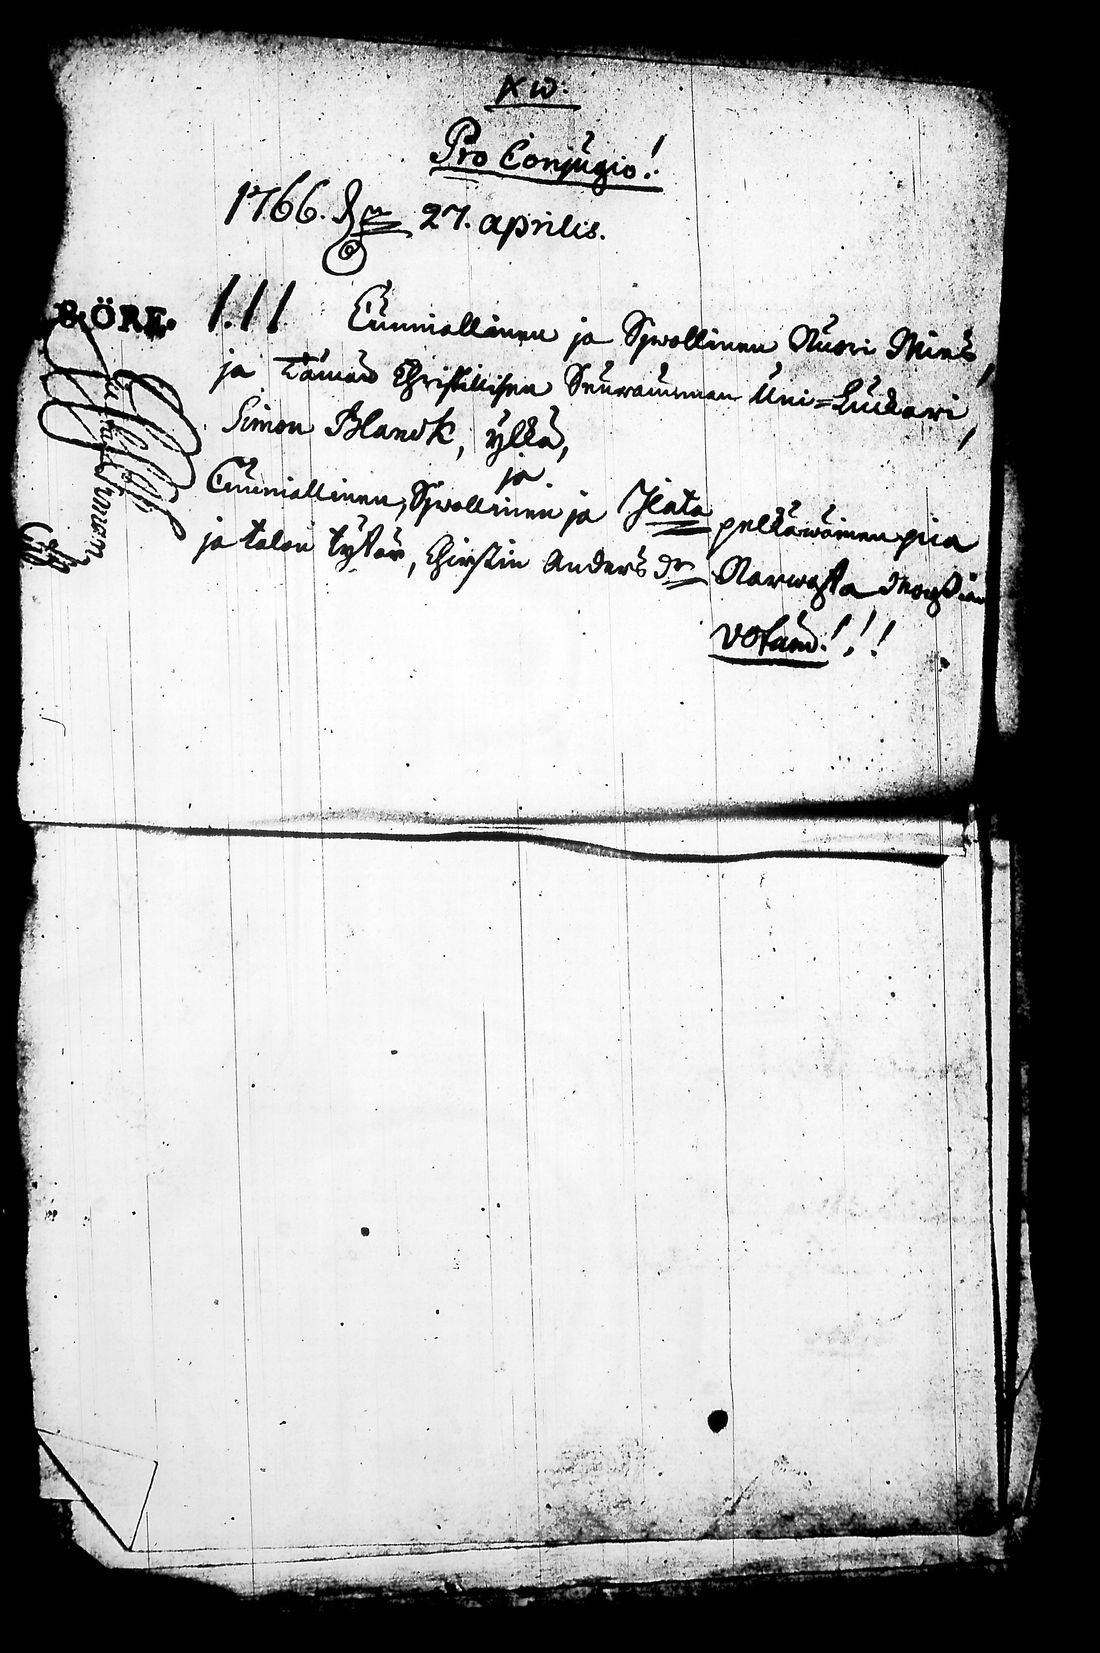 Pro Conjugio!
1766. 27. aprilis.
8. ÖRE. 1. 11 Cunniallinen ja Sijwollinen Nuori Mies,
ja Tämän Christillisen Seuracunnan Uni=Luckari,
Simon Blanck, ylkä,
ja
Cunniallinen, Sijwollinen ja Jlata pelkäwäinen piia
ja talon tytär, Chirstin Anders dr Narwasta Morsian
votum!!!